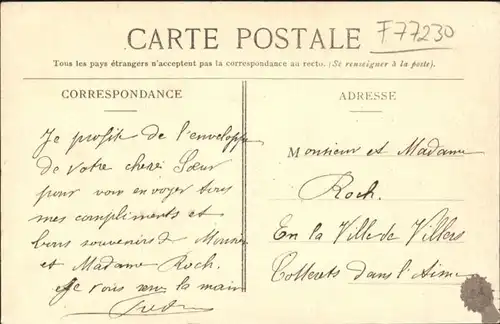 CARTE POSTALE
F77230
Tous les pays étrangers n'acceptent pas la correspondance au recto. (Se renseigner à la poste).
CORRESPONDANCE
Je profit de l'enveloppe
de votre cheri Sœur
pour vous envoyer tous
mes compliments et
bons souvenirs de Monsieur
et Madame Roch.
Je vous serre la main
ADRESSE
Monsieur et Madame
Roch.
En la Ville de Villers
Cotterets dans l'Aisne